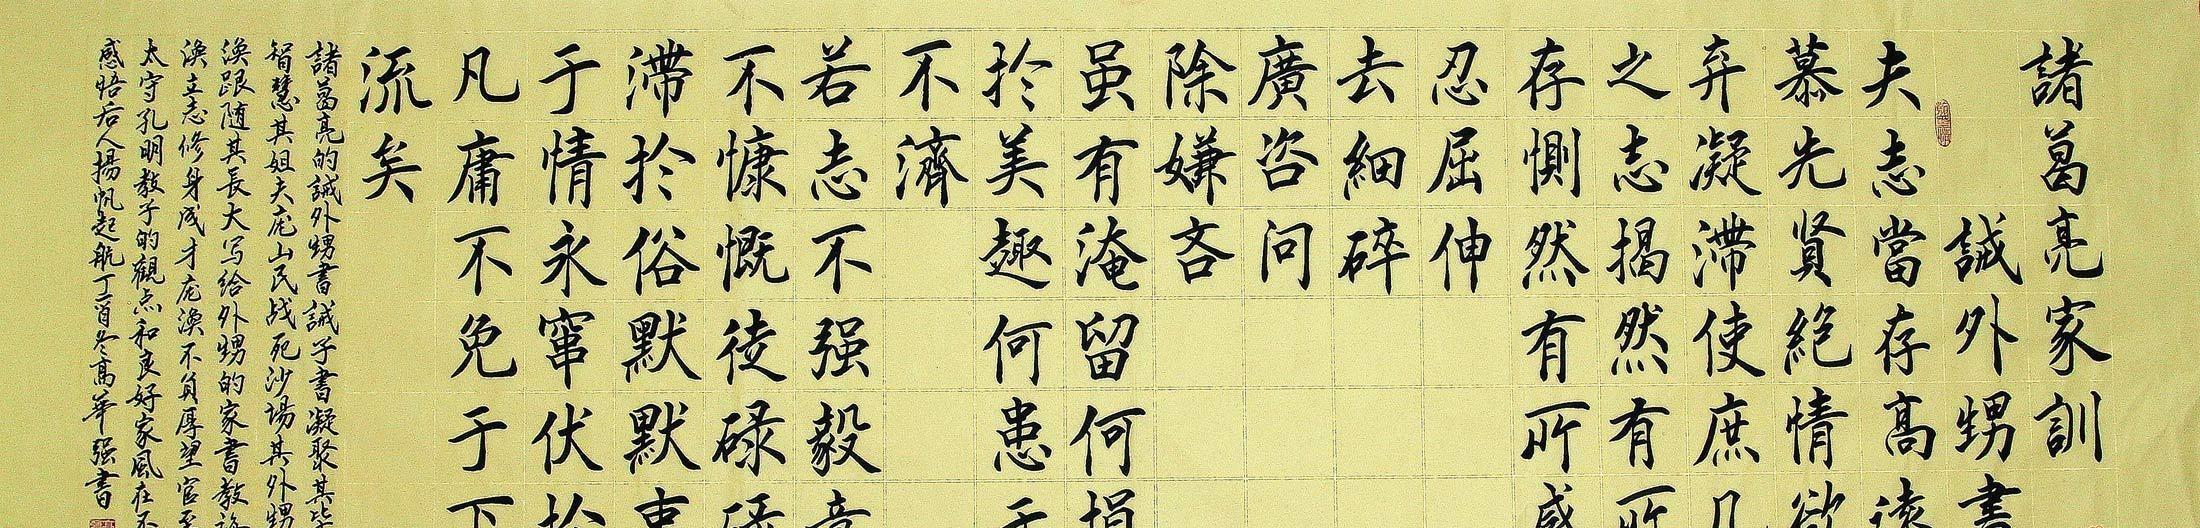 諸葛亮家訓
誡外甥書
夫志當存高遠
慕先賢絕情欲
弃凝滯使庶几
之志揭然有所
存惻然有所感
忍屈伸
去細碎
廣咨問
除嫌吝
虽有淹留何損
於美趣何患于
不濟
若志不强毅意
不慷慨徒碌碌
滯於俗默默束
于情永窜伏於
凡庸不免于下
流矣
諸葛亮的誡外甥書誡子書凝聚其毕
智慧其姐夫庞山民战死沙場其外甥
渙跟随其長大写给外甥的家書教诲
渙立志修身成才庞渙不負厚望官至
太守孔明教子的觀点和良好家風在不
感悟后人揚帆起航丁酉冬高華强書